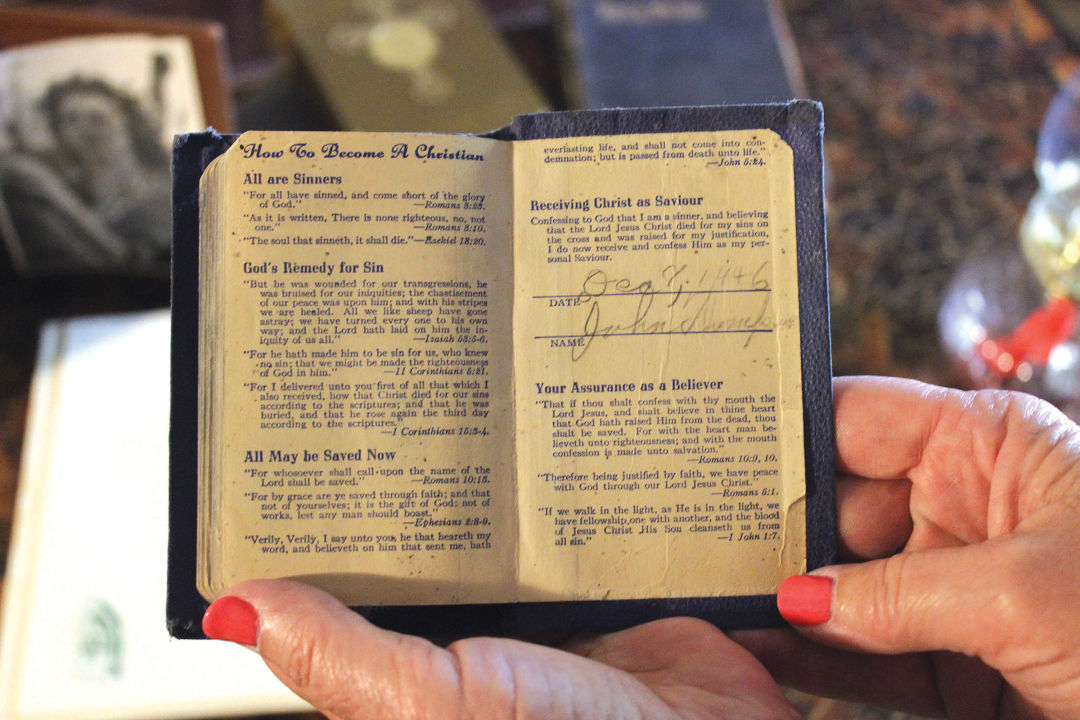 How To Become A Christian
All are Sinners
"For all have sinned, and come short of the glory
of God."—Romans 3:23.
"As it is written, There is none righteous, no, not
one."—Romans 3:10.
"The soul that sinneth, it shall die."—Ezekiel 18:20.
God's Remedy for Sin
"But he was wounded for our transgressions, he
was bruised for our iniquities; the chastisement
of our peace was upon him; and with his stripes
we are healed. All we like sheep have gone
astray; we have turned every one to his own
way; and the Lord hath laid on him the in-
iquity of us all."—Isaiah 53:5-6.
"For he hath made him to be sin for us, who knew
no sin; that we might be made the righteousness
of God in him."—II Corinthians 5:21.
"For I delivered unto you first of all that which I
also received, how that Christ died for our sins
according to the scriptures; and that he was
buried, and that he rose again the third day
according to the scriptures."
—I Corinthians 15:3-4.
All May be Saved Now
"For whosoever shall call upon the name of the
Lord shall be saved."—Romans 10:13.
"For by grace are ye saved through faith; and that
not of yourselves; it is the gift of God: not of
works, lest any man should boast."
—Ephesians 2:8-9.
"Verily, Verily, I say unto you, he that heareth my
word, and believeth on him that sent me, hath
everlasting life, and shall not come into con-
demnation; but is passed from death unto life."
—John 5:24.
Receiving Christ as Saviour
Confessing to God that I am a sinner, and believing
that the Lord Jesus Christ died for my sins on
the cross and was raised for my justification,
I do now receive and confess Him as my per-
sonal Saviour.
1946
DATE
John
NAME
Your Assurance as a Believer
"That if thou shalt confess with thy mouth the
Lord Jesus, and shalt believe in thine heart
that God hath raised Him from the dead, thou
shalt be saved. For with the heart man be-
lieveth unto righteousness; and with the mouth
confession is made unto salvation."
—Romans 10:9, 10.
"Therefore being justified by faith, we have peace
with God through our Lord Jesus Christ."
—Romans 5:1.
"If we walk in the light, as He is in the light, we
have fellowship one with another, and the blood
of Jesus Christ His Son cleanseth us from
all sin."—I John 1:7.